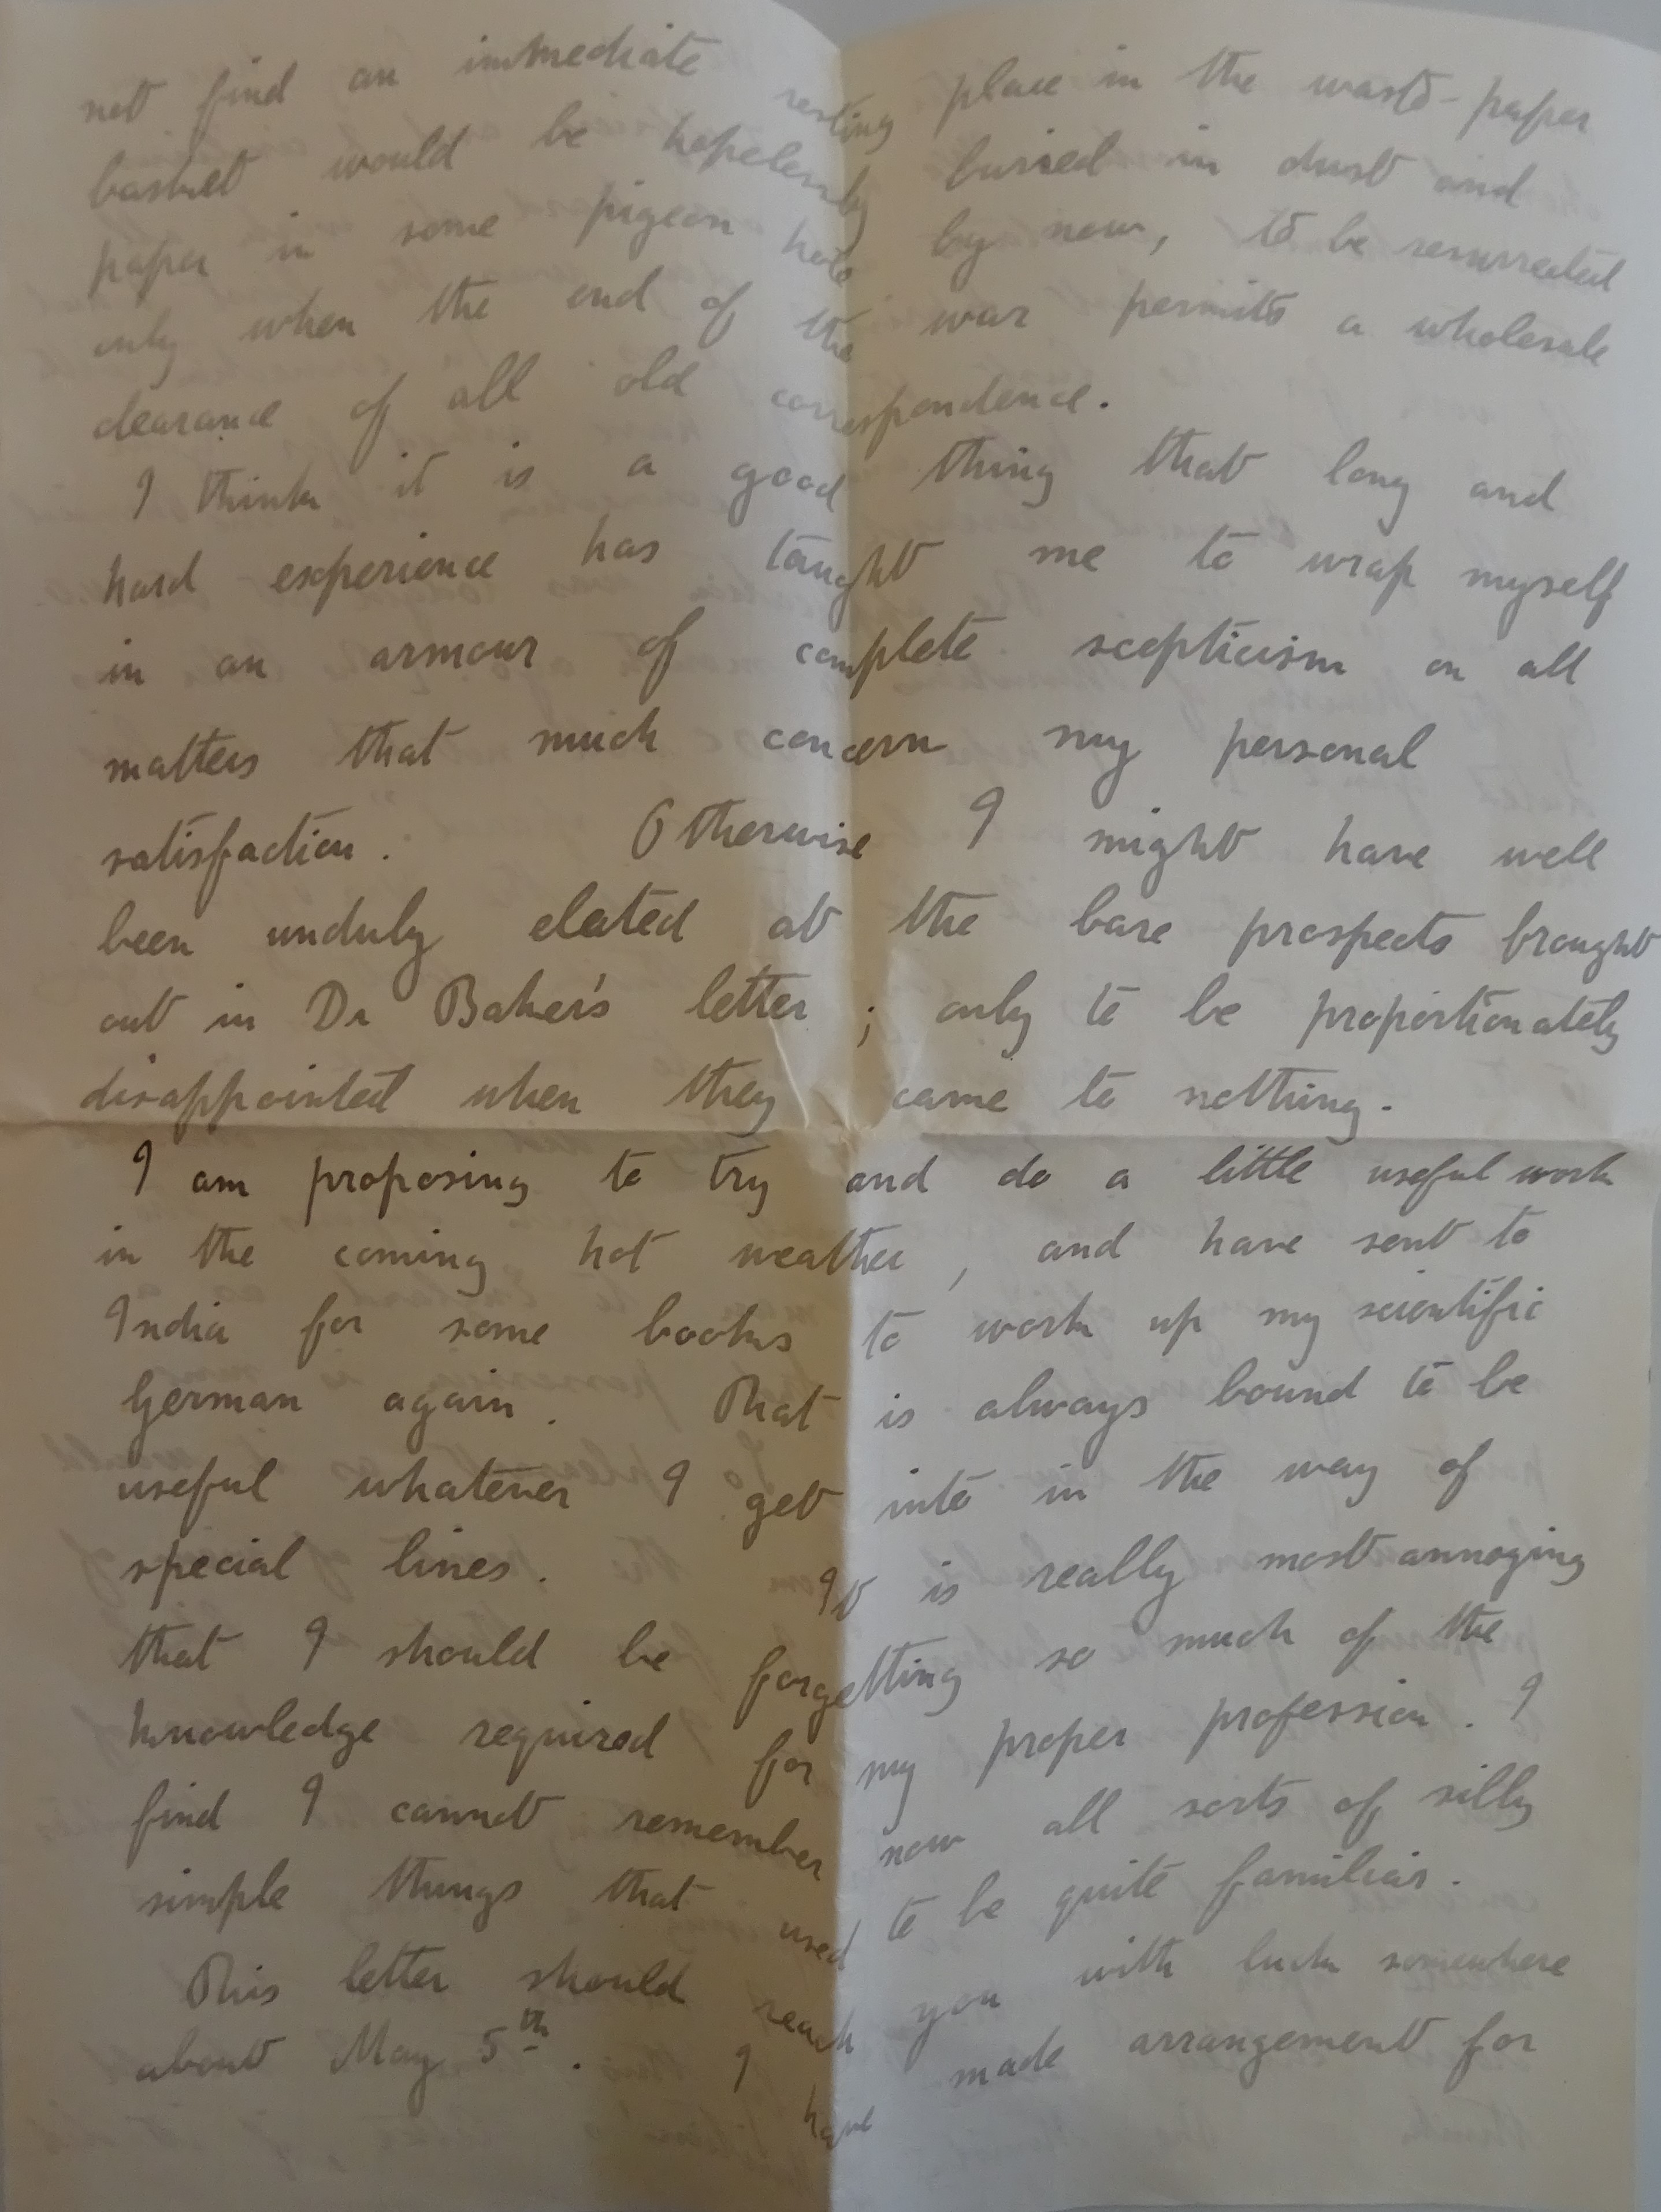 not find an immediate resting place in the waste-paper
basket would be hopelessly buried in dust and
paper in some pigeon hole by now, to be resurrected
only when the end of the war permits a wholesale
clearance of all old correspondence.
I think it is a good thing that long and
hard experience has taught me to wrap myself
in an armour of complete scepticism on all
matters that much concern my personal
satisfaction. Otherwise I might have well
been unduly elated at the bare prospects brought
out in Dr Baker's letter; only to be proportionately
disappointed when they came to nothing.
I am proposing to try and do a little useful work
in the coming hot weather, and have sent to
India for some books to work up my scientific
German again. That is always bound to be
useful whatever I get into in the way of
special lines. It is really most annoying
that I should be forgetting so much of the
knowledge required for my proper profession. I
find I cannot remember now all sorts of silly
simple things that used to be quite familiar.
This letter should reach you with luck somewhere
about May 5th. I have made arrangement for